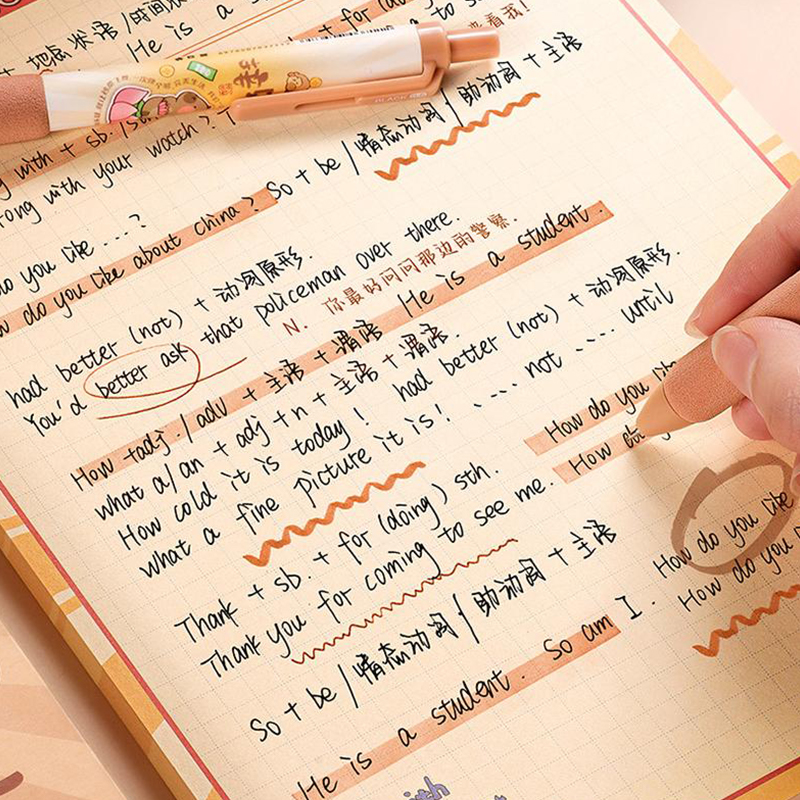 + 地点状语/时间状
He is a s
+ for (do
to s
来看我!
g with + sb. /s
rong with your watch?
So + be / 情态动词 / 助动词 + 主语
do you like ...?
w do you like about china?
had better (not) + 动词原形.
You'd better ask that policeman over there.
N. 你最好问问那边的警察.
How + adj. / adv + 主语 + 谓语 He is a student.
what a/an + adj + n + 主语 + 谓语.
had better (not) + 动词原形.
How cold it is today!
.... not .... until
what a fine picture it is!
How do you li
How
Thank + sb. + for (doing) sth.
Thank you for coming to see me.
How do you like
How do you
So + be / 情态动词 / 助动词 + 主语
He is a student. So am I.